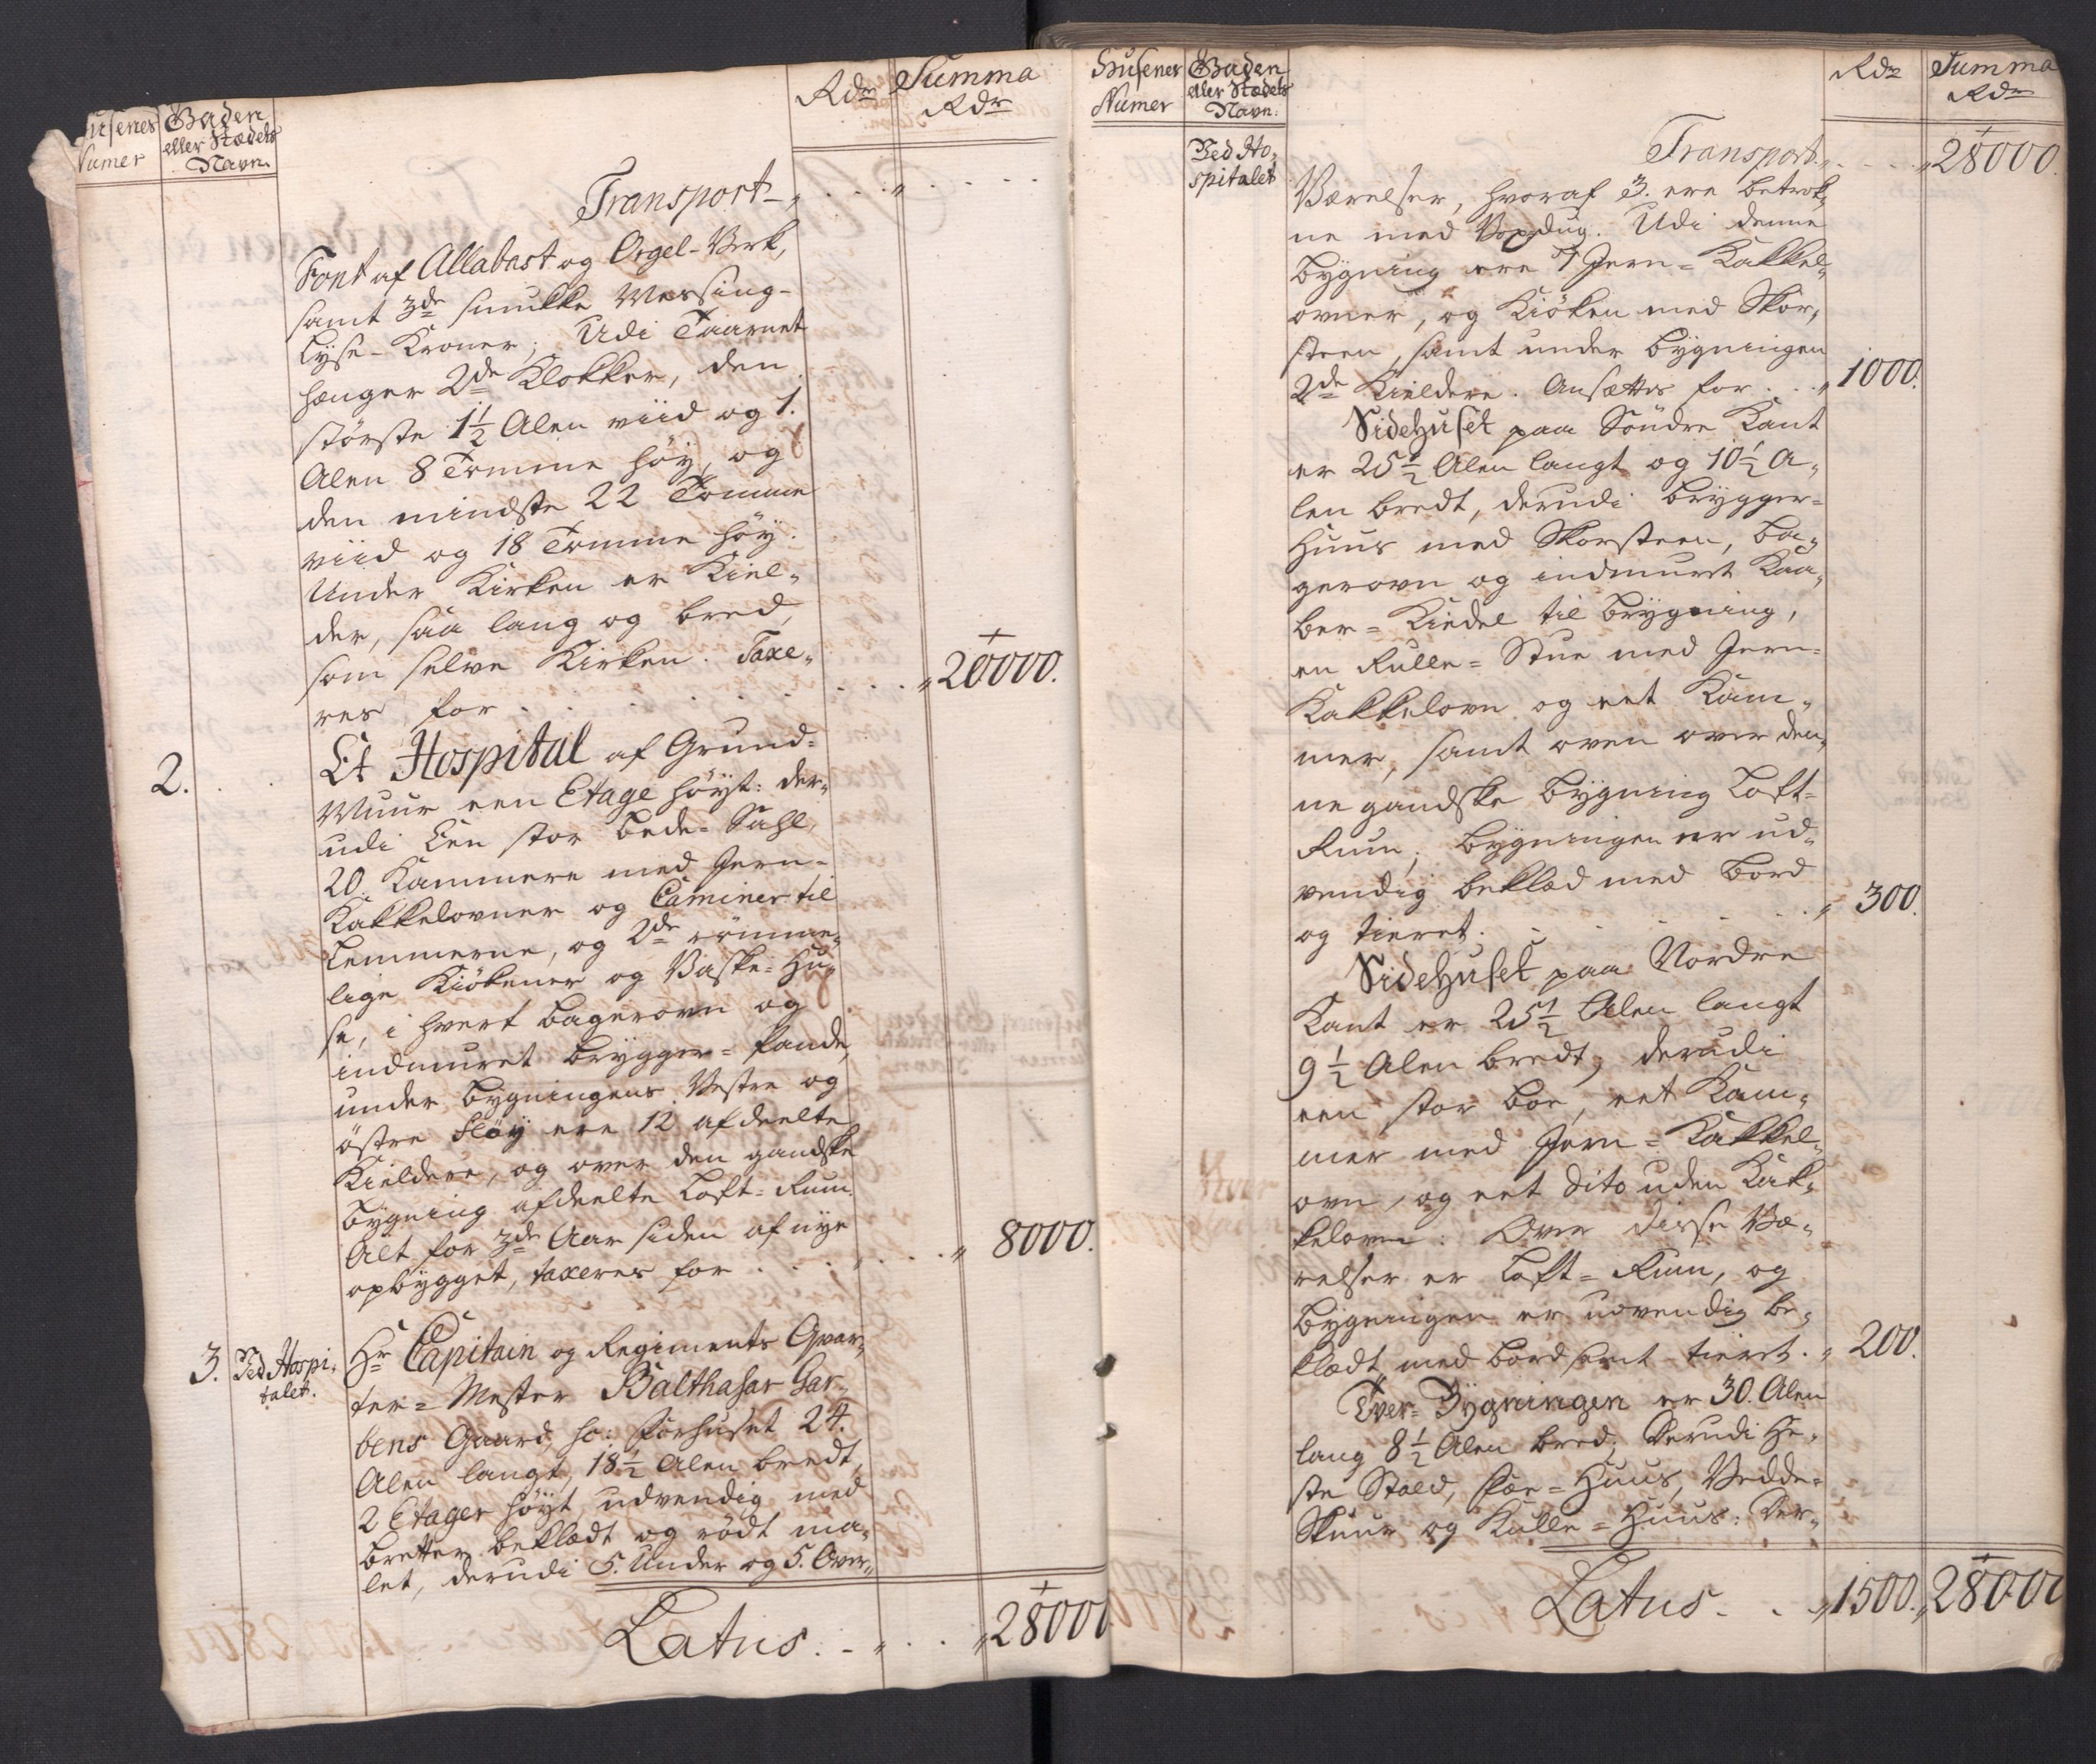 Husenes Numer
Gaden eller Stædets Navn.
Rdr
Summa Rdr
Transport
Font af Allabast og Orgel-Verk,
samt 3de smukke Messing-
Lyse-Kroner; Udi Taarnet
hænger 2de Klokker, den
største 1½ Alen viid og 1.
Alen 8 Tomme høy, og
den mindste 22 Tomme
viid og 18 Tomme høy.
Under Kirken er Kiel-
der, saa lang og bred,
som selve Kirken. Taxe-
res for . . . . . . „ 20000.
2. Et Hospital af Grund-
Muur een Etage høyt: der-
udi Een stor Bede-Sahl,
20. Kammere med Jern-
Kakkelovner og Caminer til
Lemmerne, og 2de rømme-
lige Kiökener og Vaske-Hu-
se, i hvert Bagerovn og
indmuret Brygger-Pande,
under Bygningens Vestre og
östre Flöy ere 12 afdeelte
Kieldere, og over den gandske
Bygning afdeelte Loft-Rum
Alt for 3de Aar siden af nye
opbygget, taxeres for . . . „ 8000.
3. Ved Hospi-
talet.
Hr Capitain og Regiments Qvar-
teer-Mester Balthasar Gar-
bens Gaard, sc: Forhuset 24.
Alen langt, 18½ Alen bredt,
2 Etager høyt, udvendig med
Bretter beklædt og rödt ma-
let, derudi 5. Under og 5. Over-
Latus. - „ . . „ 28000
Husenes Numer
Gaden eller Stædets Navn.
Rdr
Summa Rdr
Ved Ho-
spitalet
Transport „ . . . „ 28000.
Værelser, hvoraf 3. ere betrok-
ne med Voxdug. Udi denne
Bygning ere 7 Jern-Kakkel-
ovner, og Kiöken med Skor-
steen, samt under Bygningen
2de Kieldere. Ansættes for . . „ 1000.
Sidehuset paa Söndre Kant
er 25½ Alen langt og 10½ A-
len bredt, derudi Brygger-
Huus med Skorsteen, Ba-
gerovn og indmuret Kaa-
ber-Kiedel til Brygning,
en Rulle-Stue med Jern-
Kakkelovn og eet Kam-
mer, samt oven over den-
ne gandske Bygning Loft-
Rum; Bygningen er ud-
vendig beklæd med Bord
og tieret. . . . . . „ 300.
Sidehuset paa Nordre
Kant er 25½ Alen langt
9½ Alen bredt, derudi
een stor Boe, eet Kam-
mer med Jern-Kakkel-
ovn, og eet dito uden Kak-
kelovn: Over disse Væ-
relser er Loft-Rum, og
Bygningen er udvendig be-
klædt med Bord samt tieret. „ 200.
Tver-Bygningen er 30. Alen
lang 8½ Alen bred. Derudi He-
ste Stald, Fæe-Huus, Vedde-
Skuur og Kulle-Huus: Der-
Latus. . . „ 1500. „ 28000